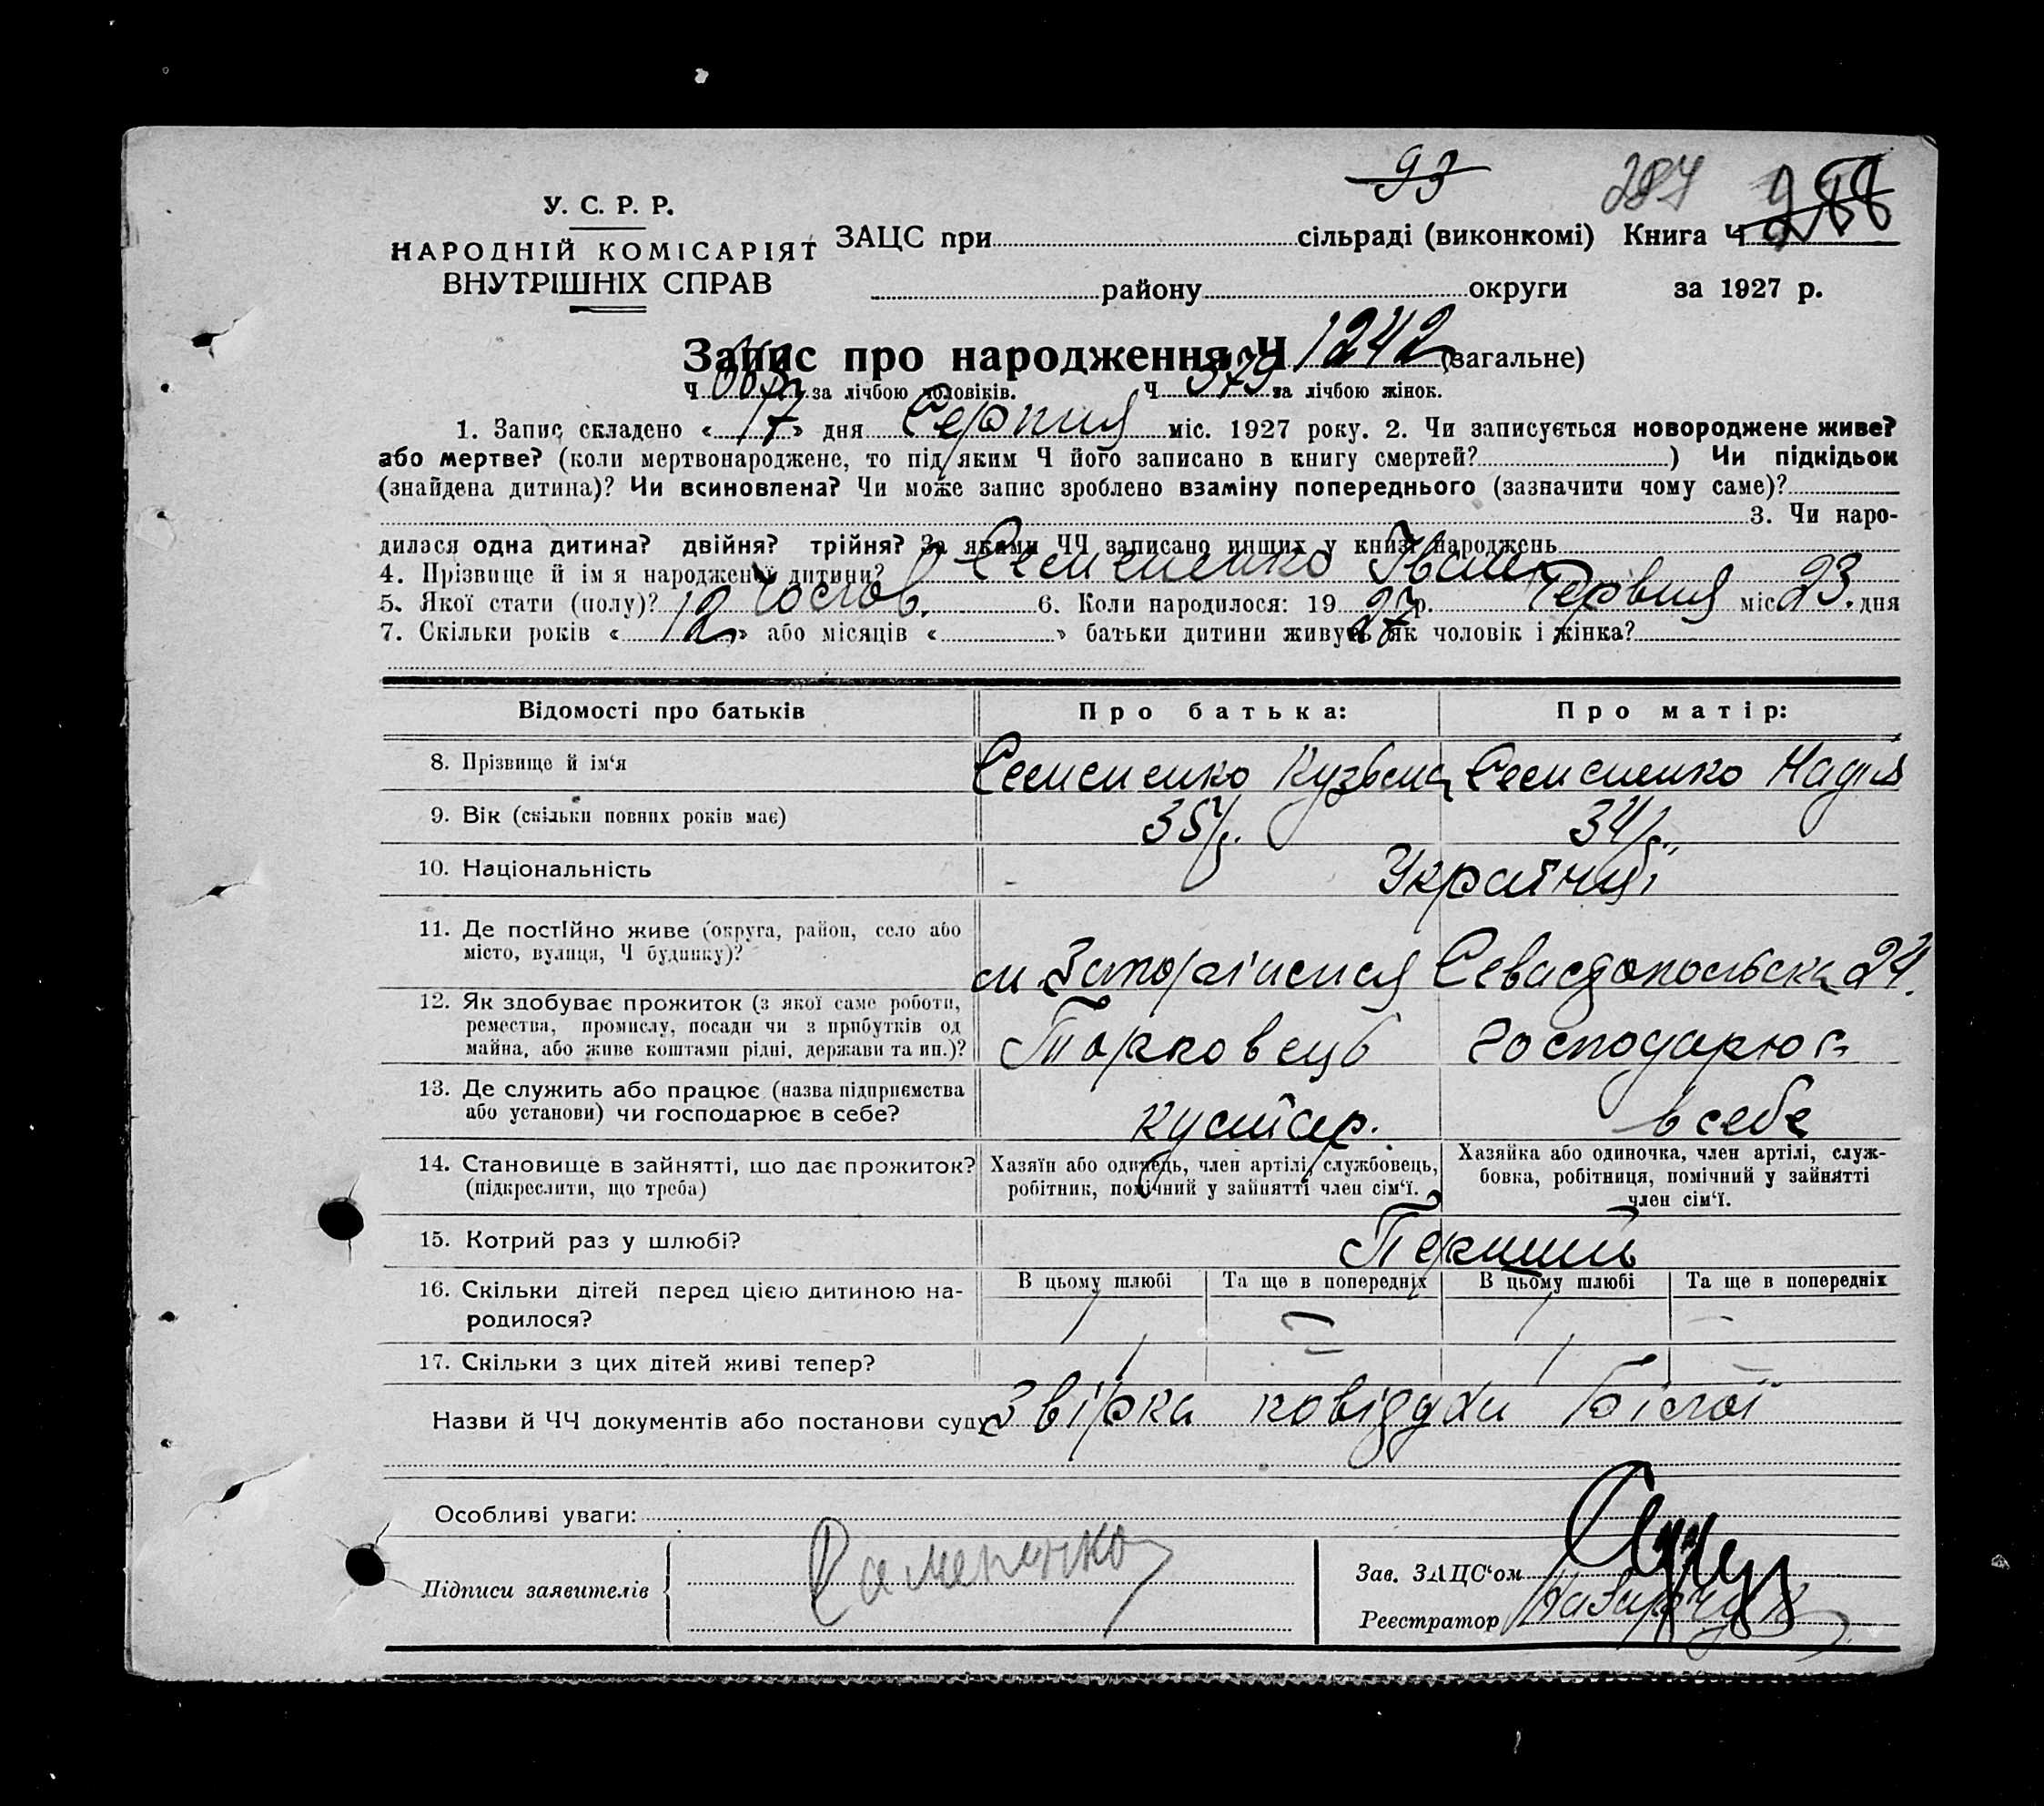 93 284 288
У. С. Р. Р.
НАРОДНІЙ КОМІСАРІЯТ
ВНУТРІШНІХ СПРАВ
ЗАЦС при сільраді (виконкомі) Книга Ч
району округи за 1927 р.
Запис про народження Ч 1242 (загальне)
Ч за лічбою чоловіків. Ч 579 за лічбою жінок.
1. Запис складено « 17 » дня Серпня міс. 1927 року. 2. Чи записується новороджене живе?
або мертве? (коли мертвонароджене, то під яким Ч його записано в книгу смертей? ) Чи підкідьок
(знайдена дитина)? Чи всиновлена? Чи може запис зроблено взаміну попереднього (зазначити чому саме)?
3. Чи наро-
дилася одна дитина? двійня? трійня? За якими ЧЧ записано инших у книзі народжень
4. Прізвище й ім я народженої дитини? Семененко Іван
5. Якої стати (полу)? чолов. 6. Коли народилося: 19 27 р. Червня міс 23. дня
7. Скільки років « 12 » або місяців « » батьки дитини живуть як чоловік і жінка?
Відомості про батьків Про батька: Про матір:
8. Прізвище й ім‘я Семененко Кузьма Семененко Надія
9. Вік (скільки повних років має) 35 р. 34 р.
10. Національність Українці
11. Де постійно живе (округа, район, село або
місто, вулиця, Ч будинку)? м. Запоріжжя Севастопольська 24.
12. Як здобуває прожиток (з якої саме роботи,
ремества, промислу, посади чи з прибутків од
майна, або живе коштами рідні, держави та ин.)? Торговець господарює
13. Де служить або працює (назва підприємства
або установи) чи господарює в себе? кустар. в себе
14. Становище в зайнятті, що дає прожиток?
(підкреслити, що треба)
Хазяїн або одинець, член артілі, службовець,
робітник, помічний у зайнятті член сім‘ї.
Хазяйка або одиночка, член артілі, служ-
бовка, робітниця, помічний у зайнятті
член сім‘ї.
15. Котрий раз у шлюбі? Перший
16. Скільки дітей перед цією дитиною на-
родилося?
В цьому шлюбі Та ще в попередніх В цьому шлюбі Та ще в попередніх
1 — 1 —
17. Скільки з цих дітей живі тепер? 1 — 1 —
Назви й ЧЧ документів або постанови суду Звірка
Особливі уваги:
Підписи заявителів
Зав. ЗАЦС‘ом
Реєстратор Назарчук